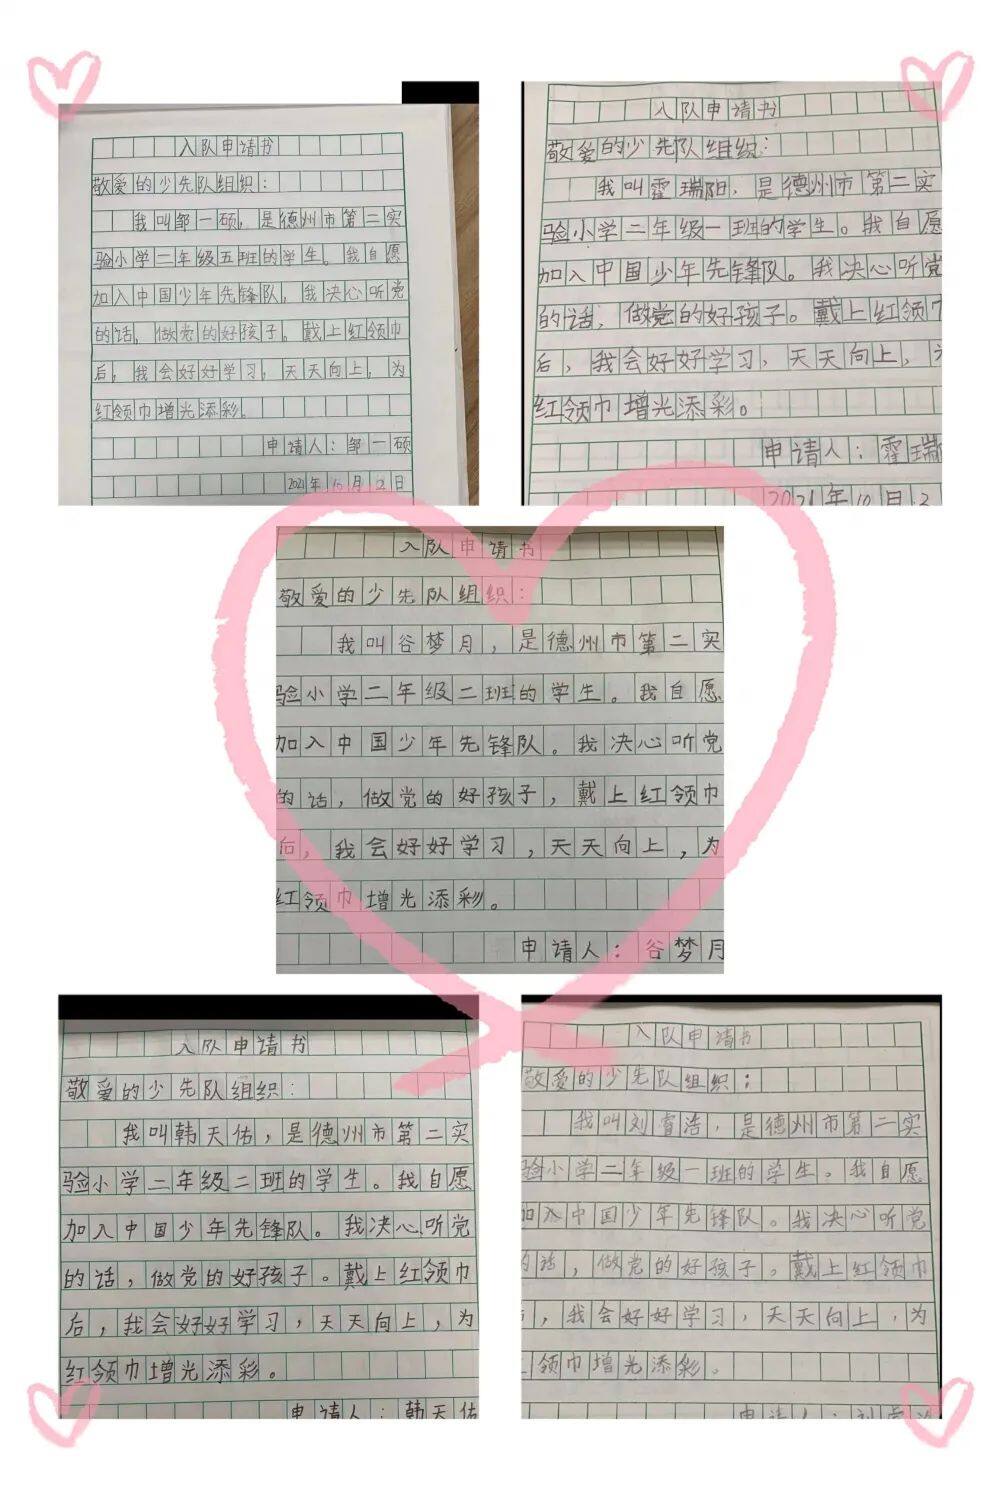 入队申请书
敬爱的少先队组织：
我叫邹一硕，是德州市第二实
验小学二年级五班的学生。我自愿
加入中国少年先锋队，我决心听党
的话，做党的好孩子。戴上红领巾
后，我会好好学习，天天向上，为
红领巾增光添彩。
申请人：邹一硕
2021年10月12日
入队申请书
敬爱的少先队组织：
我叫霍瑞阳，是德州市第二实
验小学二年级一班的学生。我自愿
加入中国少年先锋队。我决心听党
的话，做党的好孩子。戴上红领
后，我会好好学习，天天向上，
红领巾增光添彩。
申请人：霍瑞
2021年10月
入队申请书
敬爱的少先队组织：
我叫谷梦月，是德州市第二实
验小学二年级二班的学生。我自愿
加入中国少年先锋队。我决心听党
的话，做党的好孩子，戴上红领巾
后，我会好好学习，天天向上，为
红领巾增光添彩。
申请人：谷梦月
入队申请书
敬爱的少先队组织：
我叫韩天佑，是德州市第二实
验小学二年级二班的学生。我自愿
加入中国少年先锋队。我决心听党
的话，做党的好孩子。戴上红领巾
后，我会好好学习，天天向上，为
红领巾增光添彩。
申请人：韩天佑
入队申请书
敬爱的少先队组织：
我叫刘睿浩，是德州市第二实
验小学二年级一班的学生。我自愿
加入中国少年先锋队。我决心听党
的话，做党的好孩子。戴上红领巾
，我会好好学习，天天向上，为
领巾增光添彩。
申请人：刘睿